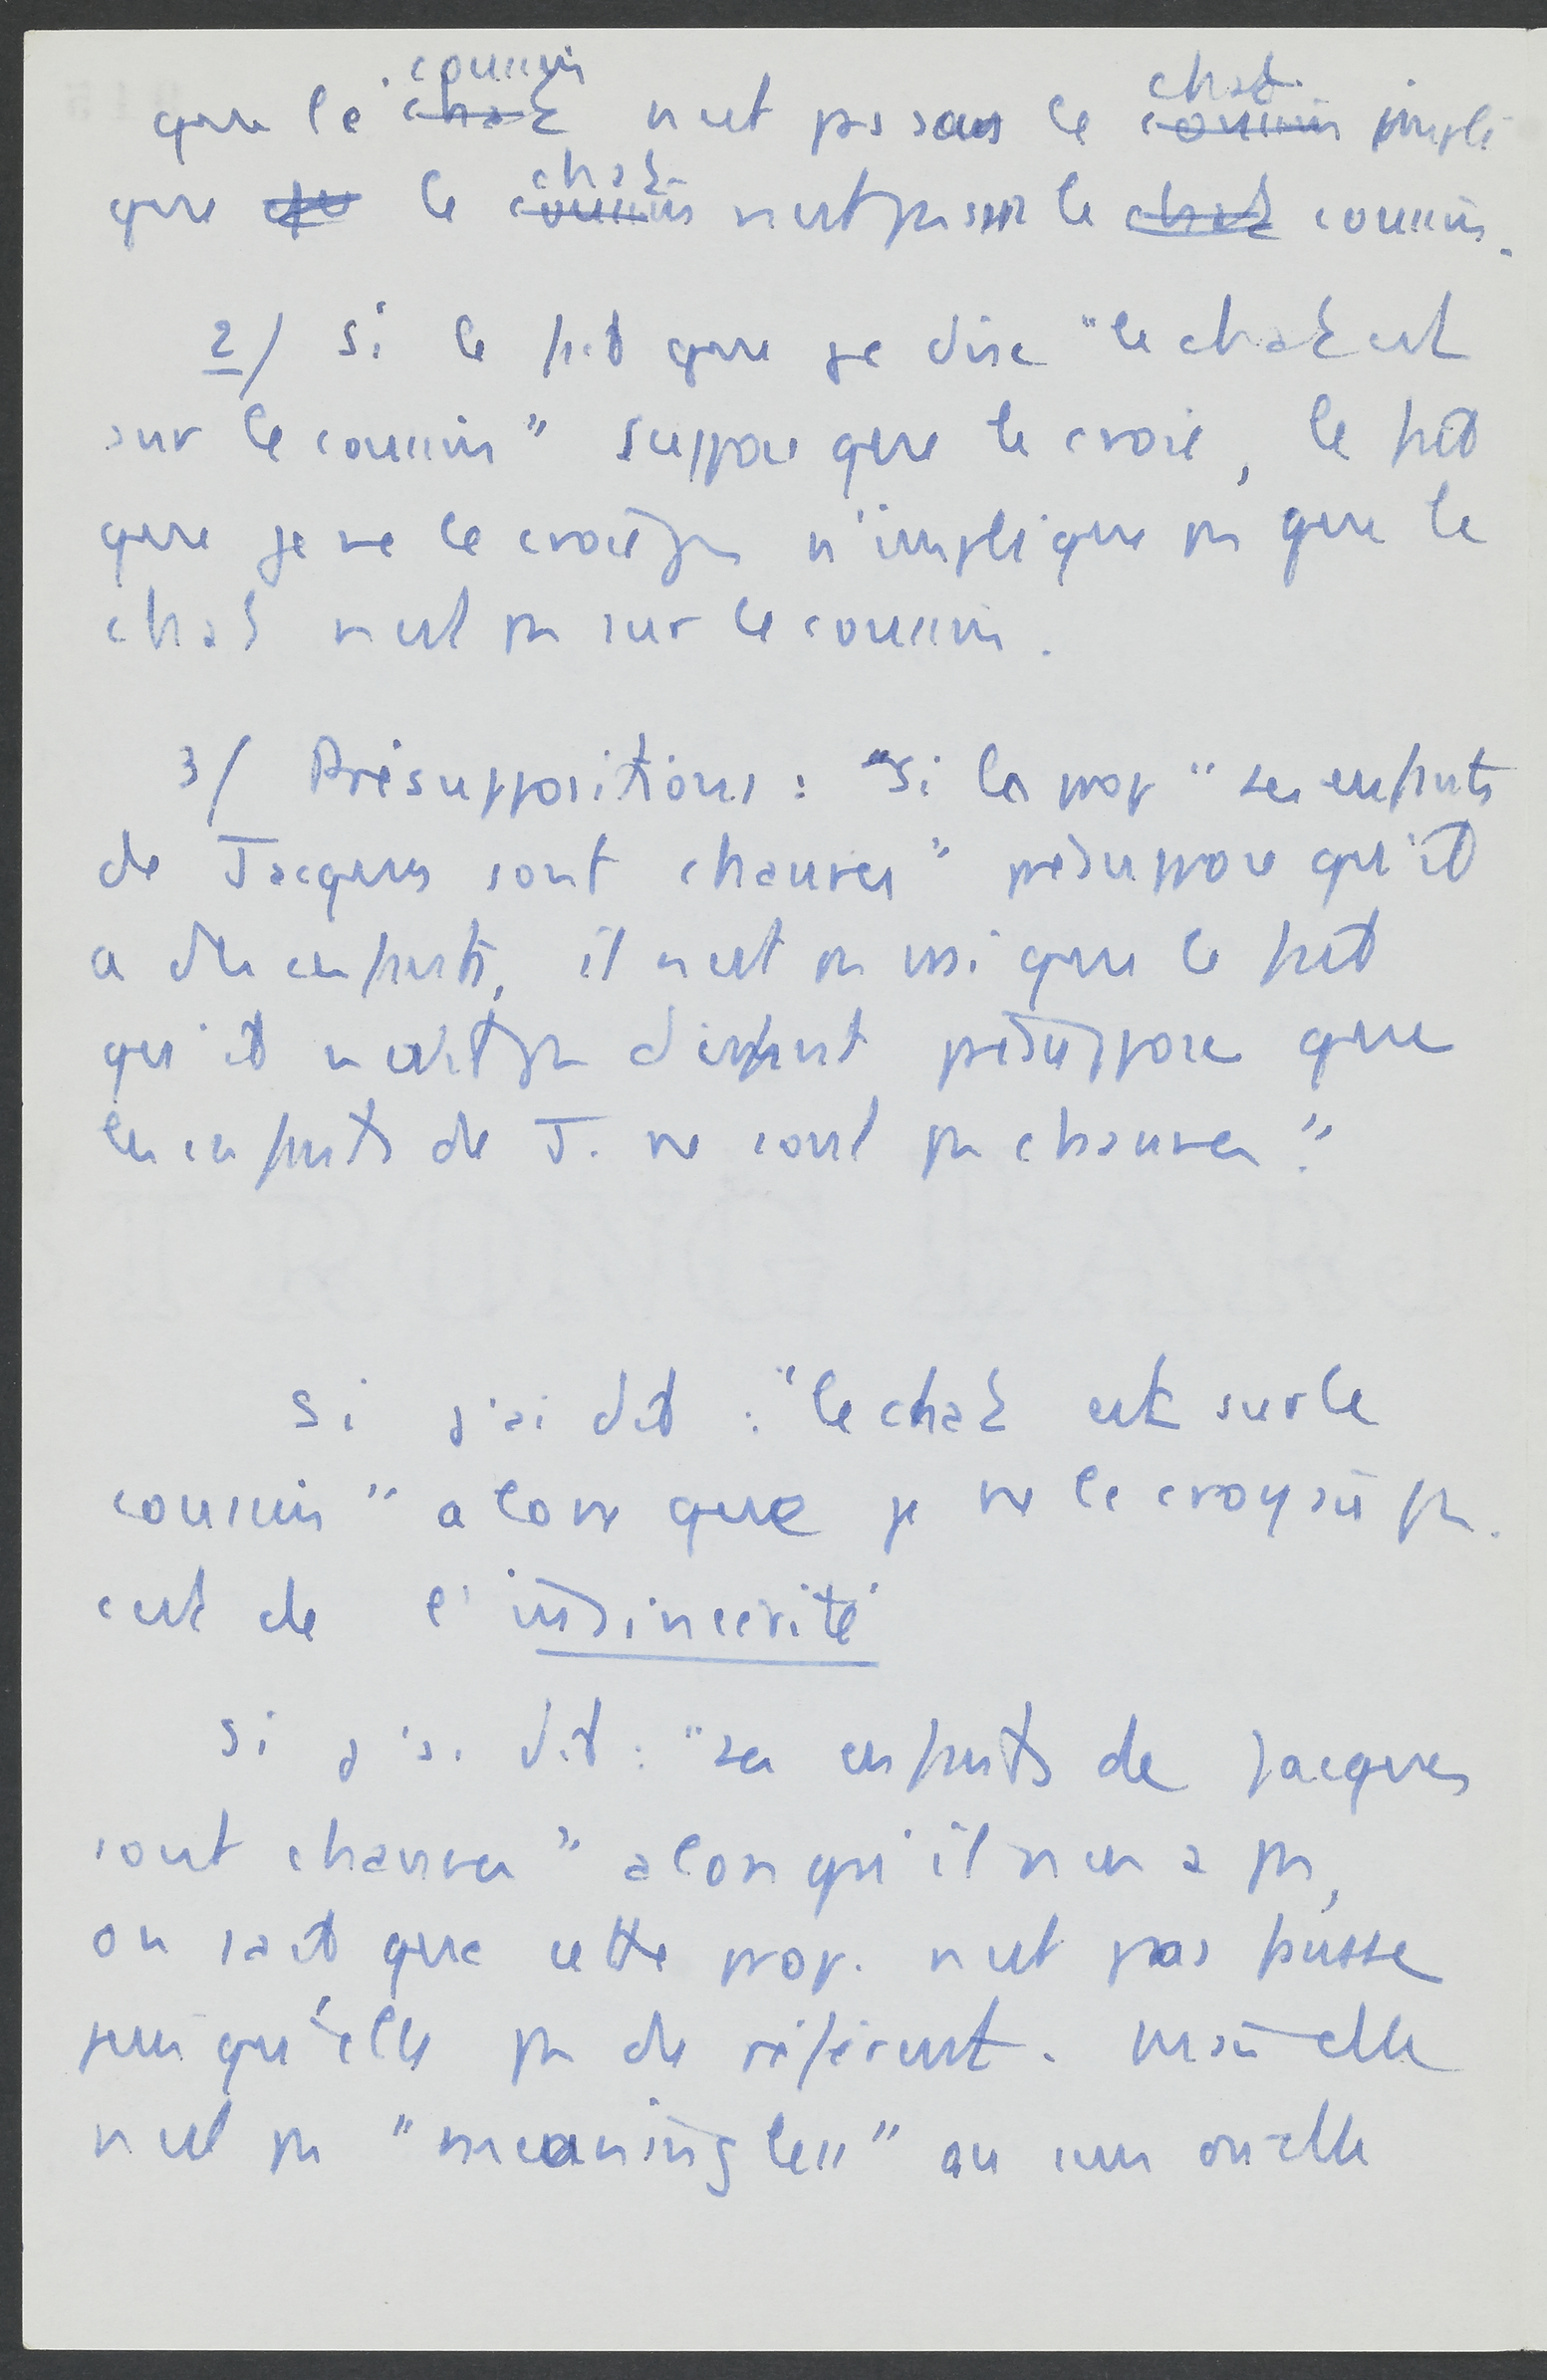 que le ~~chat~~ coussin n'est pas sous le ~~coussin~~ chat impli
que ~~que~~ le ~~coussin~~ chat n'est pas sur le ~~chat~~ coussin.
2/ Si le fait que je dise "le chat est
sur le coussin" suppose que le croie, le fait
que je ne le croie pas n'implique pas que le
chat n'est pas sur le coussin.
3/ Présuppositions : "Si la prop "les enfants
de Jacques sont chauves" présuppose qu'il
a des enfants, il n'est pas vrai que le fait
qu'il n'ait pas d'enfant présuppose que
les enfants de J. ne sont pas chauves."
Si j'ai dit : "le chat est sur le
coussin" alors que je ne le croyais pas.
c'est de l'insincérité
Si j'ai dit : "les enfants de Jacques
sont chauves" alors qu'il n'en a pas,
on sait que cette prop. n'est pas fausse
puisqu'elle pas de référent. Mais elle
n'est pas "meaningless" au sens où elle